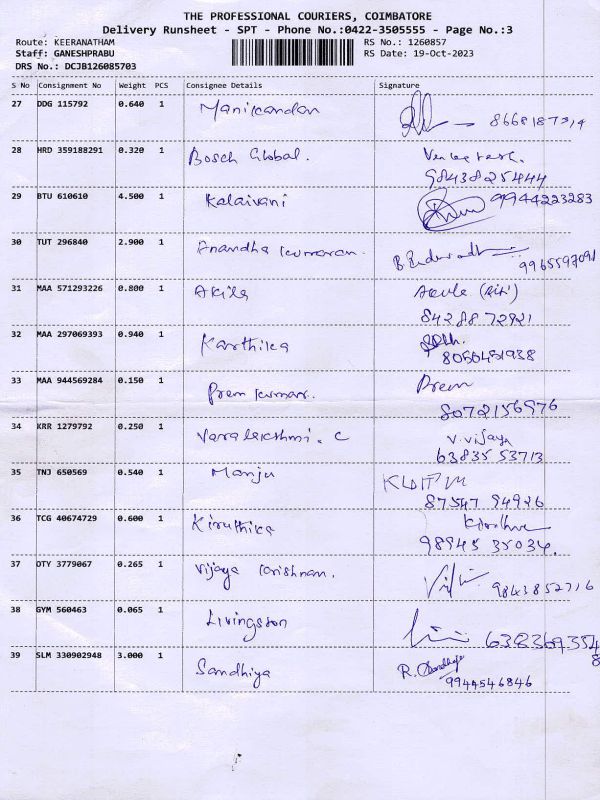 THE PROFESSIONAL COURIERS, COIMBATORE
Delivery Runsheet - SPT - Phone No.:0422-3505555 - Page No.:3
Route: KEERANATHAM RS No.: 1260857
Staff: GANESHPRABU RS Date: 19-Oct-2023
DRS No.: DCJB126085703
S No Consignment No Weight PCS Consignee Details Signature
27 DDG 115792 0.640 1 Manikandan
28 HRD 359188291 0.320 1 Bosch Global.
9843825444
29 BTU 610610 4.500 1 Kalaivani 9944223283
30 TUT 296840 2.900 1 Anandha kumaran.
9965597091
31 MAA 571293226 0.800 1 Akila
8428872921
32 MAA 297069393 0.940 1 Karthika
33 MAA 944569284 0.150 1 Prem kumar. Prem
8072156976
34 KRR 1279792 0.250 1 Varalakshmi. C V. Vijaya
6383553713
35 TNJ 650569 0.540 1 Manju
87547 94926
36 TCG 40674729 0.600 1 Kiruthika
98945 35034.
37 OTY 3779067 0.265 1 Vijaya krishnan.
9843852716
38 GYM 560463 0.065 1 Livingston
6383693548
39 SLM 330902948 3.000 1 Sandhiya R. Sandhiya
9944546846